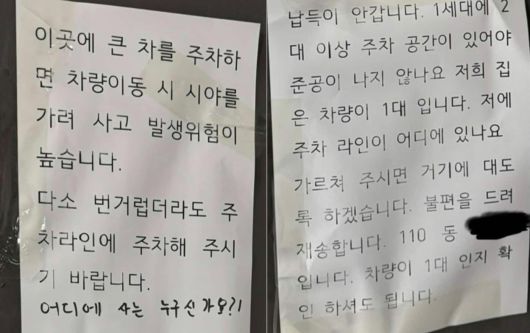 이곳에 큰 차를 주차하
면 차량이동 시 시야를
가려 사고 발생위험이
높습니다.
다소 번거럽더라도 주
차라인에 주차해 주시
기 바랍니다.
어디에 사는 누구신가요?!
납득이 안갑니다. 1세대에 2
대 이상 주차 공간이 있어야
준공이 나지 않나요 저희 집
은 차량이 1대 입니다. 저에
주차 라인이 어디에 있나요
가르쳐 주시면 거기에 대도
록 하겠습니다. 불편을 드려
재송합니다. 110 동
입니다. 차량이 1대 인지 확
인 하셔도 됩니다.